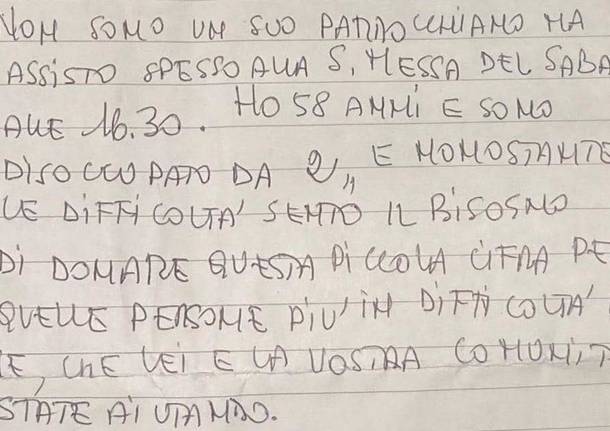 NON SONO UN SUO PARROCCHIANO MA
ASSISTO SPESSO ALLA S. MESSA DEL SABA
ALLE 16.30. HO 58 ANNI E SONO
DISOCCUPATO DA 2,, E NONOSTANTE
LE DIFFICOLTA' SENTO IL BISOGNO
DI DONARE QUESTA PICCOLA CIFRA PE
QUELLE PERSONE PIU' IN DIFFICOLTA'
E, CHE LEI E LA VOSTRA COMUNIT
STATE AIUTANDO.